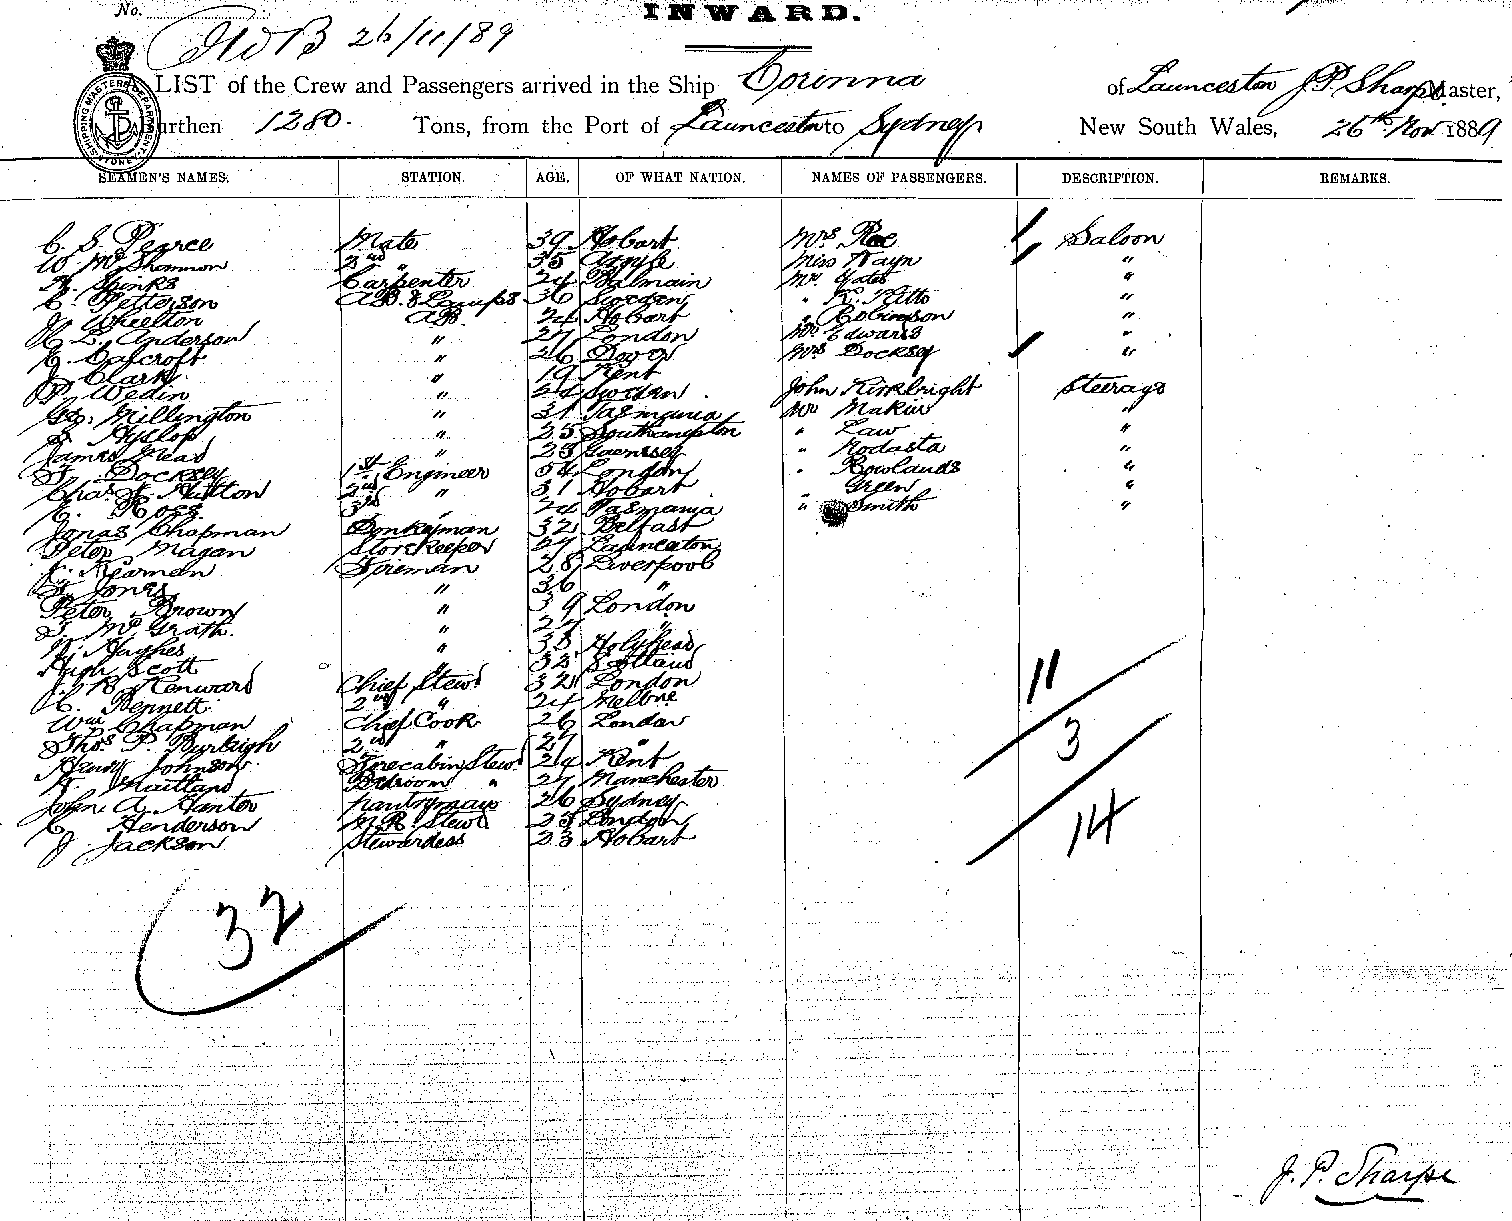 No.
INWARD.
26/11/89
LIST of the Crew and Passengers arrived in the Ship Corinna of Launceston J. P. Sharpe Master,
Burthen 1280. Tons, from the Port of Launceston to Sydney New South Wales, 26th Nov 1889
SEAMEN'S NAMES. STATION. AGE. OF WHAT NATION. NAMES OF PASSENGERS. DESCRIPTION. REMARKS.
C. S. Pearce Mate 39 Hobart Mrs Roe Saloon
W. McShannon 2nd " 35 Argyle Miss Wayn "
Spinks Carpenter 24 Balmain Mr. Yates "
C. Petterson A.B. & Lamps 36 Sweden " "
J. Wheelton A.B. 24 Hobart " Robinson "
L. Anderson " 27 London Edwards "
Calcroft " 26 Dover Mrs Docksey "
J. Clark " 19 Kent
P. Wedin " 24 Sweden John Kirkbright Steerage
Geo. Millington " 31 Tasmania Mr Makin "
Hyslop " 25 Southampton " Law "
James Mead 23 Guernsey " Nodasta "
Docksey 1st Engineer 54 London " Rowlands "
Chas. Hutton 2nd " 31 Hobart Green "
Ross 3rd 24 Tasmania " Smith "
Jonas Chapman Donkeyman 32 Belfast
Peter Magan Storekeeper 27 Launceston
Kearnen Fireman 28 Liverpool
Jones " 36 "
Peter Brown " 39 London
McGrath. " 27 "
Hughes " 38 Holyhead
Hugh Scott " 32 Scotland
Kenward Chief Stewd 32 London
C. Bennett 2nd " 24 Melbne
Wm Chapman Chief Cook 26 London
Thos P. Burleigh 2nd " 27 "
Henry Johnson Forecabin Stewd 24 Kent
Maitland Bedroom " 27 Manchester
John A. Hunter Pantryman 26 Sydney
C. Henderson M.R. Stewd 25 London
J. Jackson Stewardess 23 Hobart
11
3
14
32
J. P. Sharpe